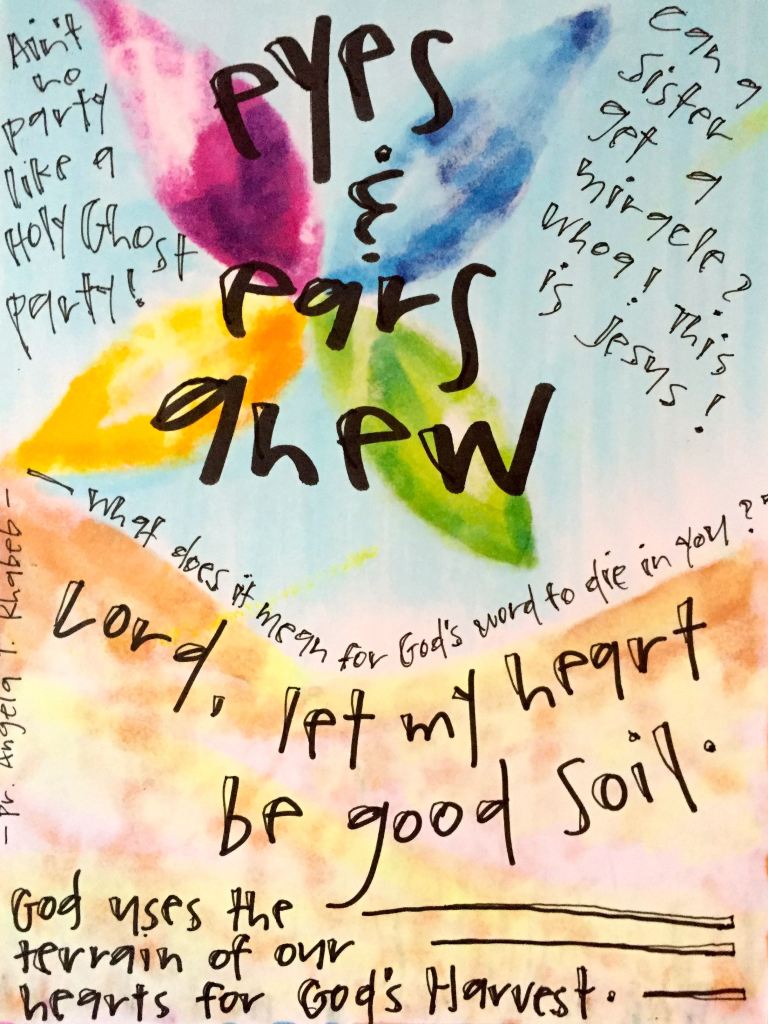 Ain't
no
party
like a
Holy Ghost
party!
eyes
&
ears
anew
Can a
sister
get a
miracle?
Whoa! This
is Jesus!
"What does it mean for God's word to die in you?"
- Pr. Angela T. Khabeb -
Lord, let my heart
be good soil.
God uses the
terrain of our
hearts for God's Harvest.